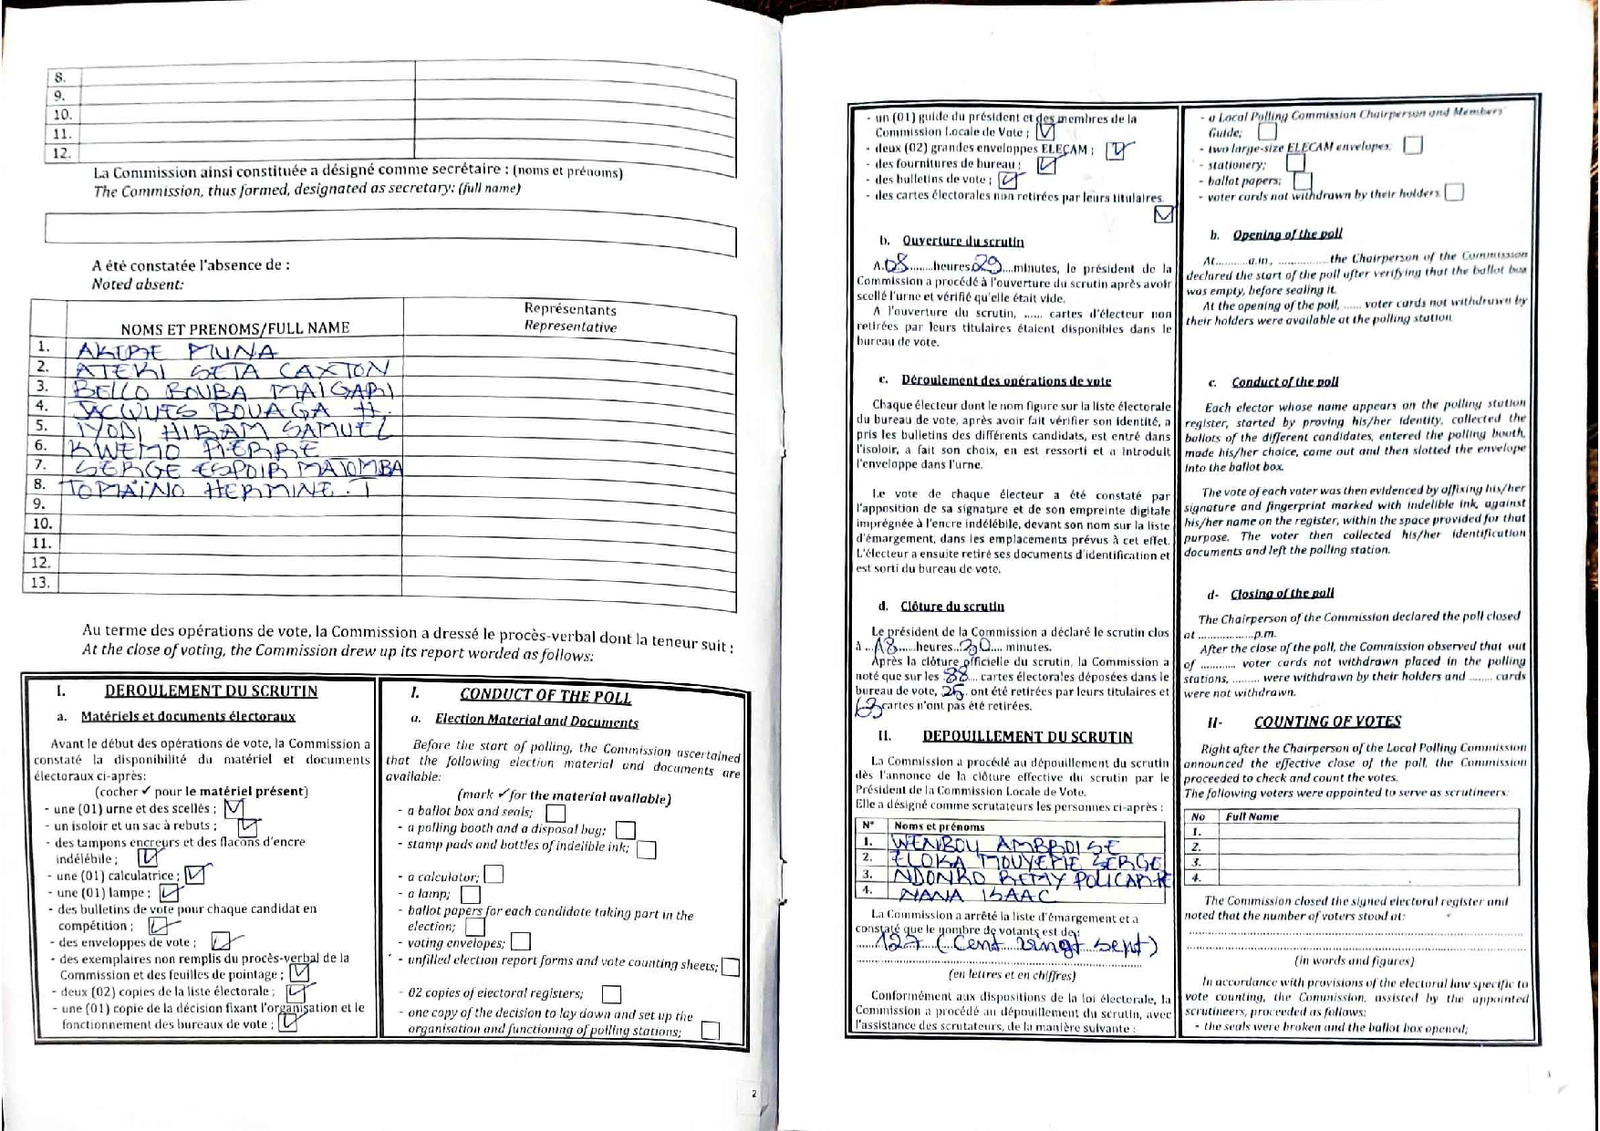 8.
9.
10.
11.
12.
La Commission ainsi constituée a désigné comme secrétaire : (noms et prénoms)
The Commission, thus formed, designated as secretary: (full name)
A été constatée l'absence de :
Noted absent:
NOMS ET PRENOMS/FULL NAME
Représentants
Representative
1. AKERE MUNA
2. ATEKI SETA CAXTON
3. BELLO BOUBA MAIGARI
4. JACQUES BOUAGA H.
5. IYODI HIRAM SAMUEL
6. KWEMO PIERRE
7. SERGE ESPOIR MATOMBA
8. TOMAINO HERMINE. T
9.
10.
11.
12.
13.
Au terme des opérations de vote, la Commission a dressé le procès-verbal dont la teneur suit :
At the close of voting, the Commission drew up its report worded as follows:
I. DEROULEMENT DU SCRUTIN
a. Matériels et documents électoraux
Avant le début des opérations de vote, la Commission a
constaté la disponibilité du matériel et documents
électoraux ci-après:
(cocher ✓ pour le matériel présent)
- une (01) urne et des scellés ;
- un isoloir et un sac à rebuts ;
- des tampons encreurs et des flacons d'encre
indélébile ;
- une (01) calculatrice ;
- une (01) lampe ;
- des bulletins de vote pour chaque candidat en
compétition ;
- des enveloppes de vote ;
- des exemplaires non remplis du procès-verbal de la
Commission et des feuilles de pointage ;
- deux (02) copies de la liste électorale ;
- une (01) copie de la décision fixant l'organisation et le
fonctionnement des bureaux de vote ;
I. CONDUCT OF THE POLL
a. Election Material and Documents
Before the start of polling, the Commission ascertained
that the following election material and documents are
available:
(mark ✓ for the material available)
- a ballot box and seals;
- a polling booth and a disposal bag;
- stamp pads and bottles of indelible ink;
- a calculator;
- a lamp;
- ballot papers for each candidate taking part in the
election;
- voting envelopes;
- unfilled election report forms and vote counting sheets;
- 02 copies of electoral registers;
- one copy of the decision to lay down and set up the
organisation and functioning of polling stations;
2
- un (01) guide du président et des membres de la
Commission Locale de Vote ;
- deux (02) grandes enveloppes ELECAM ;
- des fournitures de bureau ;
- des bulletins de vote ;
- des cartes électorales non retirées par leurs titulaires.
b. Ouverture du scrutin
A 08 heures 29 minutes, le président de la
Commission a procédé à l'ouverture du scrutin après avoir
scellé l'urne et vérifié qu'elle était vide.
A l'ouverture du scrutin, ...... cartes d'électeur non
retirées par leurs titulaires étaient disponibles dans le
bureau de vote.
c. Déroulement des opérations de vote
Chaque électeur dont le nom figure sur la liste électorale
du bureau de vote, après avoir fait vérifier son identité, a
pris les bulletins des différents candidats, est entré dans
l'isoloir, a fait son choix, en est ressorti et a introduit
l'enveloppe dans l'urne.
Le vote de chaque électeur a été constaté par
l'apposition de sa signature et de son empreinte digitale
imprégnée à l'encre indélébile, devant son nom sur la liste
d'émargement, dans les emplacements prévus à cet effet.
L'électeur a ensuite retiré ses documents d'identification et
est sorti du bureau de vote.
d. Clôture du scrutin
Le président de la Commission a déclaré le scrutin clos
à 18 heures 30 minutes.
Après la clôture officielle du scrutin, la Commission a
noté que sur les 88 cartes électorales déposées dans le
bureau de vote, 25 ont été retirées par leurs titulaires et
63 cartes n'ont pas été retirées.
II. DEPOUILLEMENT DU SCRUTIN
La Commission a procédé au dépouillement du scrutin
dès l'annonce de la clôture effective du scrutin par le
Président de la Commission Locale de Vote.
Elle a désigné comme scrutateurs les personnes ci-après :
N° Noms et prénoms
1. WENBOU AMBROISE
2. ELOKA MOUYEME SERGE
3. NDONKO REMY POLICARPE
4. NANA ISAAC
La Commission a arrêté la liste d'émargement et a
constaté que le nombre de votants est de :
127 (Cent vingt sept)
(en lettres et en chiffres)
Conformément aux dispositions de la loi électorale, la
Commission a procédé au dépouillement du scrutin, avec
l'assistance des scrutateurs, de la manière suivante :
- a Local Polling Commission Chairperson and Members'
Guide;
- two large-size ELECAM envelopes;
- stationery;
- ballot papers;
- voter cards not withdrawn by their holders.
b. Opening of the poll
At.........a.m, ...............the Chairperson of the Commission
declared the start of the poll after verifying that the ballot box
was empty, before sealing it.
At the opening of the poll, ...... voter cards not withdrawn by
their holders were available at the polling station.
c. Conduct of the poll
Each elector whose name appears on the polling station
register, started by proving his/her identity, collected the
ballots of the different candidates, entered the polling booth,
made his/her choice, came out and then slotted the envelope
into the ballot box.
The vote of each voter was then evidenced by affixing his/her
signature and fingerprint marked with indelible ink, against
his/her name on the register, within the space provided for that
purpose. The voter then collected his/her identification
documents and left the polling station.
d- Closing of the poll
The Chairperson of the Commission declared the poll closed
at .................p.m.
After the close of the poll, the Commission observed that out
of ........... voter cards not withdrawn placed in the polling
stations, ......... were withdrawn by their holders and ........ cards
were not withdrawn.
II- COUNTING OF VOTES
Right after the Chairperson of the Local Polling Commission
announced the effective close of the poll, the Commission
proceeded to check and count the votes.
The following voters were appointed to serve as scrutineers:
No Full Name
1.
2.
3.
4.
The Commission closed the signed electoral register and
noted that the number of voters stood at:
(in words and figures)
In accordance with provisions of the electoral law specific to
vote counting, the Commission, assisted by the appointed
scrutineers, proceeded as follows:
- the seals were broken and the ballot box opened;